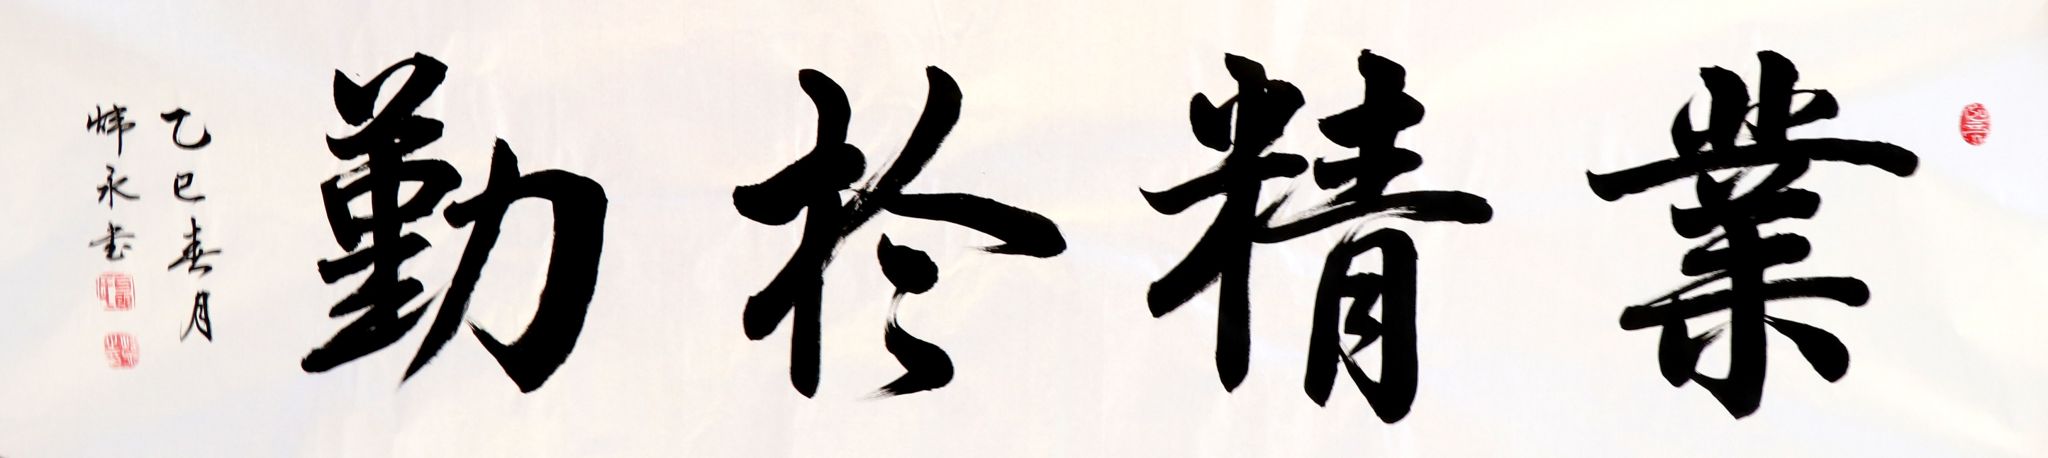 業精於勤
乙巳春月
炜永书